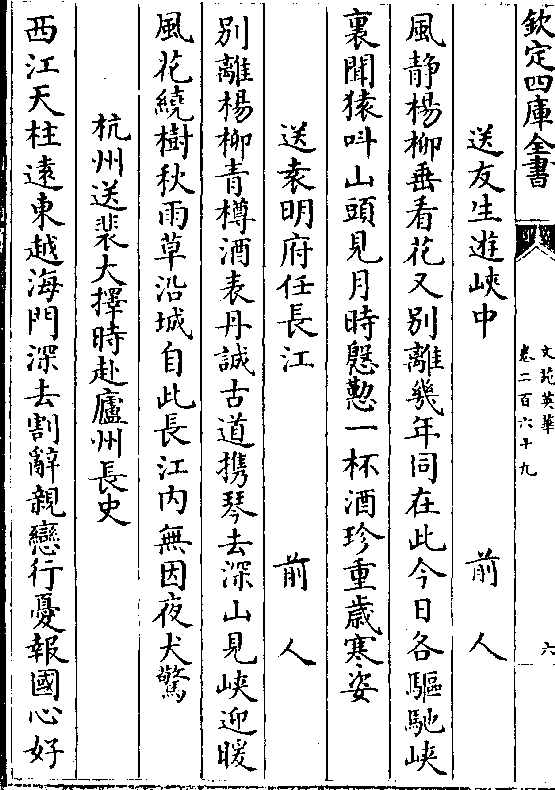 欽定四庫全書
文苑英華
卷二百六十九
六
送友生遊峽中
前人
風静楊柳垂看花又别離幾年同在此今日各驅馳峽
裏聞猿呌山頭見月時慇懃一杯酒珍重歲寒姿
送袁明府任長江
前人
别離楊柳青樽酒表丹誠古道携琴去深山見峽迎暖
風花繞樹秋雨草沿城自此長江内無因夜犬驚
杭州送裴大擇時赴廬州長史
西江天柱逺東越海門深去割辭親戀行憂報國心好